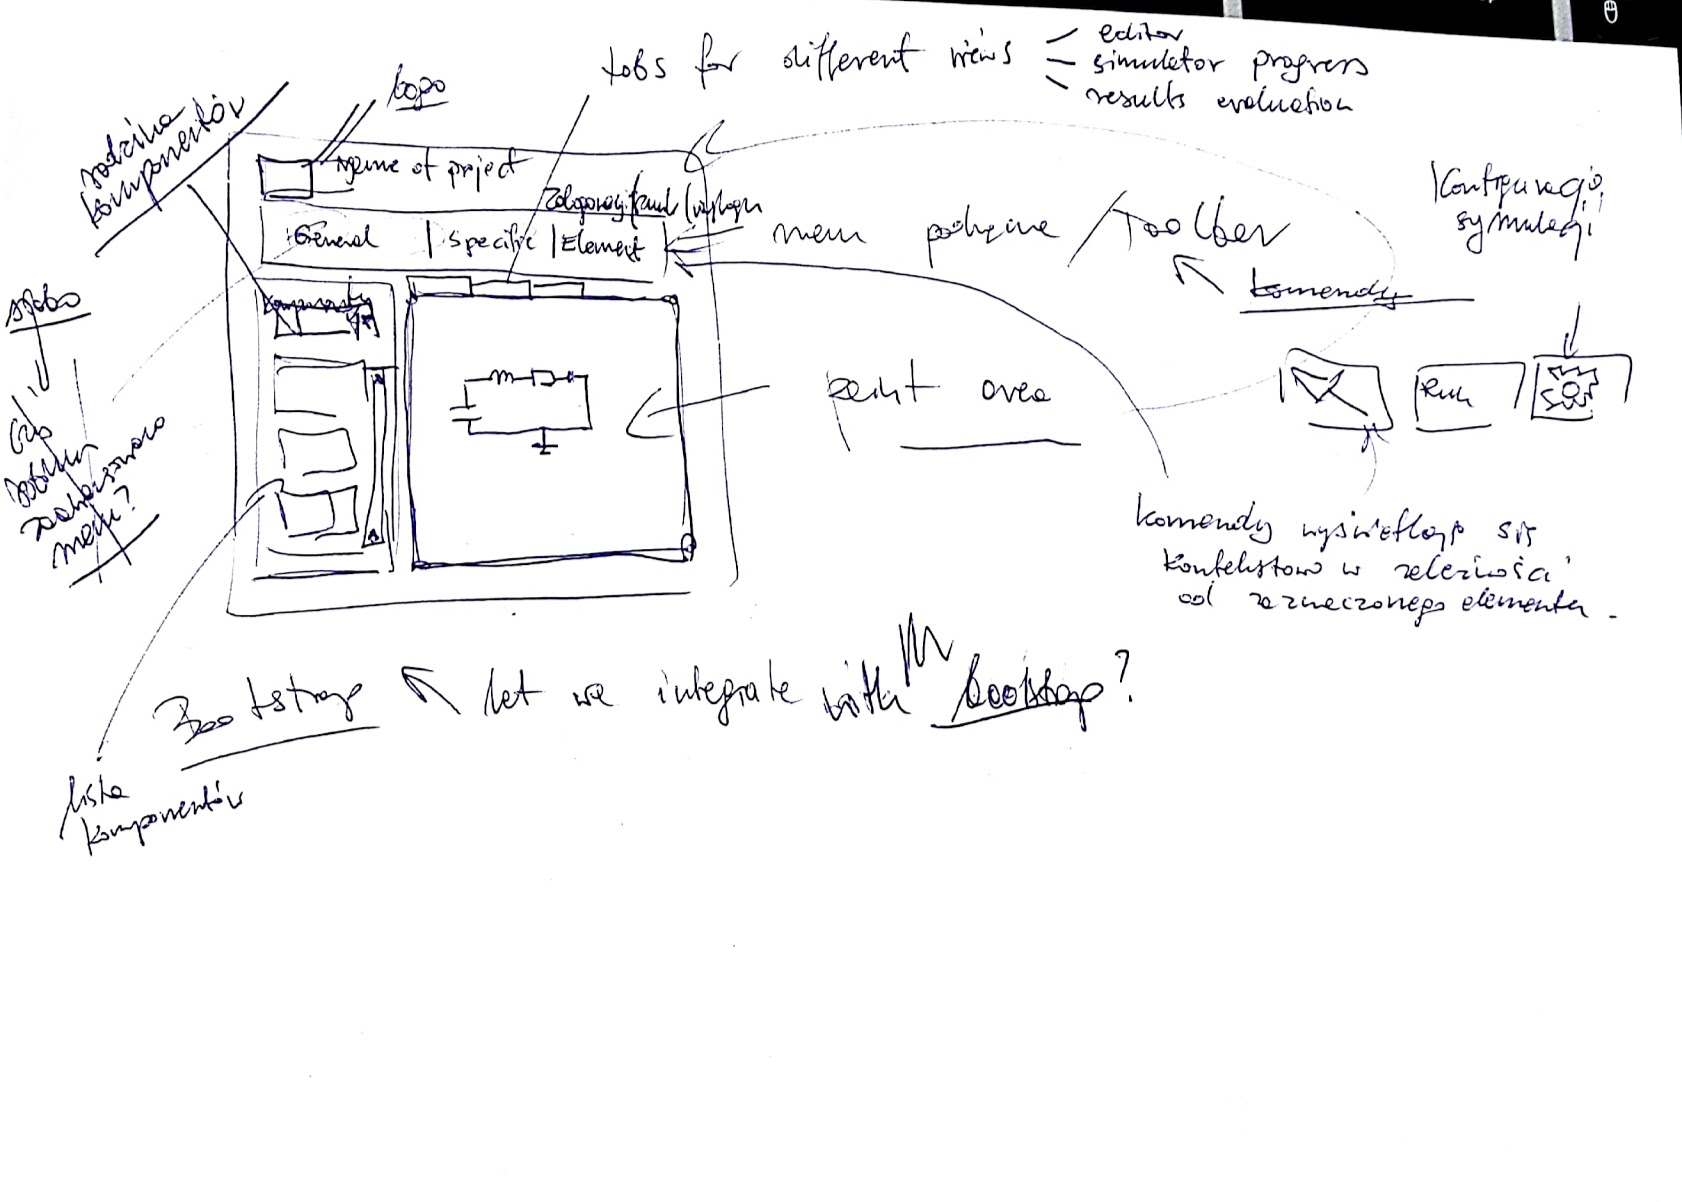 tabs for different views
editor
simulator progress
results evaluation
logo
rodzina
komponentów
name of project
General | Specific | Element
menu podręczne / Toolbar
komendy
Konfiguracja
symulacji
słabo
menu?
paint area
Run
komendy wyświetlają się
kontekstowo w zależności
od zaznaczonego elementu.
Bootstrap
let we integrate with bootstrap?
lista
komponentów